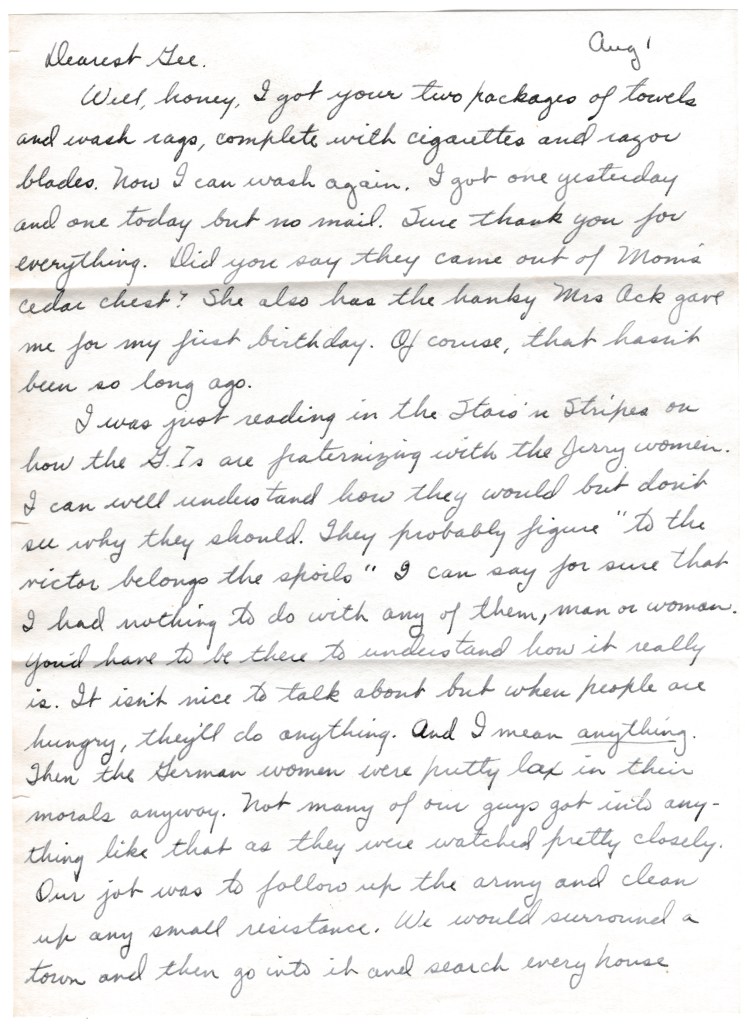 Aug 1
Dearest Gee.
Well, honey, I got your two packages of towels
and wash rags, complete with cigarettes and razor
blades. Now I can wash again. I got one yesterday
and one today but no mail. Sure thank you for
everything. Did you say they came out of Mom's
cedar chest? She also has the hanky Mrs Ack gave
me for my first birthday. Of course, that hasn't
been so long ago.
I was just reading in the Stars'n Stripes on
how the G.Is are fraternizing with the Jerry women.
I can well understand how they would but don't
see why they should. They probably figure "to the
victor belongs the spoils" I can say for sure that
I had nothing to do with any of them, man or woman.
You'd have to be there to understand how it really
is. It isn't nice to talk about but when people are
hungry, they'll do anything. And I mean anything.
Then the German women were pretty lax in their
morals anyway. Not many of our guys got into any-
thing like that as they were watched pretty closely.
Our job was to follow up the army and clean
up any small resistance. We would surround a
town and then go into it and search every house